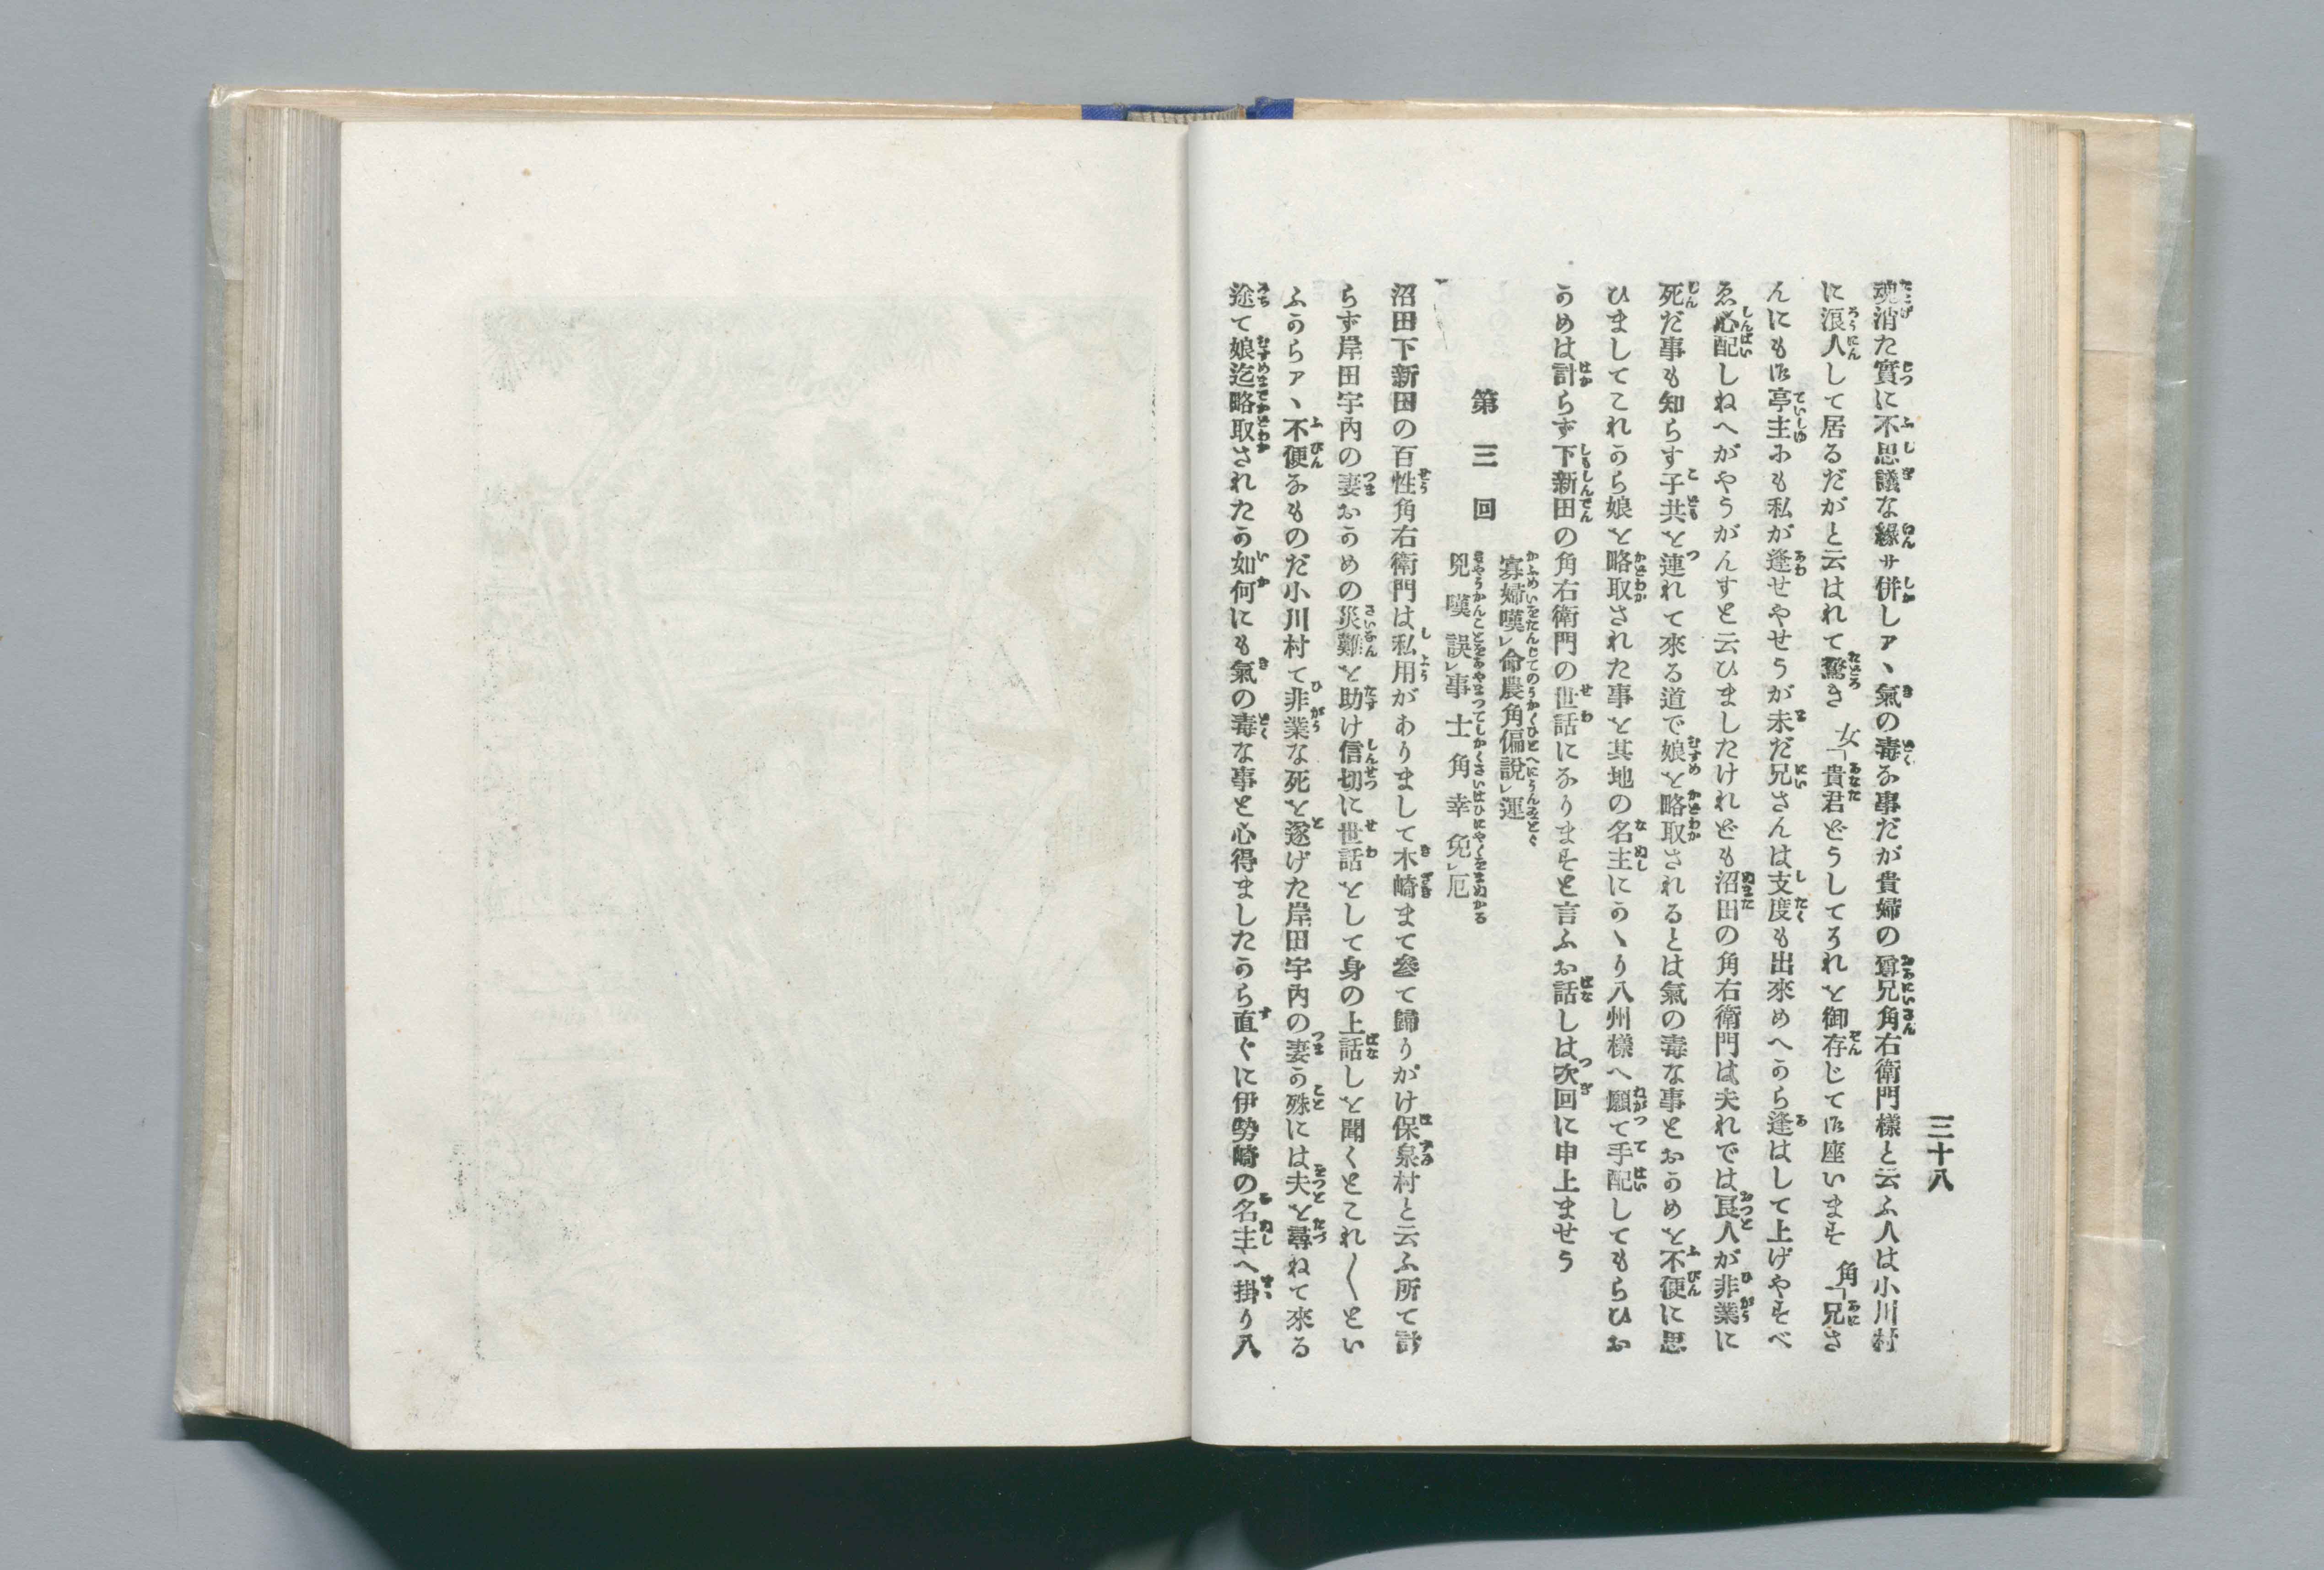 三十八
魂消た實に不思議な緣サ併しアヽ氣の毒な事だが貴婦の尊兄角右衛門樣と云ふ人は小川村
に浪人して居るだがと云はれて驚き 女「貴君どうしてそれを御存じで御座います 角「兄さ
んにも御亭主にも私が逢せやせうが未だ兄さんは支度も出來めへから逢はして上げやすべ
ゑ心配しねへがやうがんすと云ひましたけれども沼田の角右衛門は夫れでは良人が非業に
死だ事も知らず子共を連れて來る道で娘を略取されるとは氣の毒な事とおかめを不便に思
ひましてこれから娘を略取された事を其地の名主にかゝり八州樣へ願て手配してもらひお
かめは計らず下新田の角右衛門の世話になりますと言ふお話しは次回に申上ませう
第三回
寡婦嘆レ命農角偏說レ運
兇嘆誤レ事士角幸免レ厄
沼田下新田の百性角右衛門は私用がありまして木崎まで參て歸りがけ保泉村と云ふ所で計
らず岸田宇內の妻おかめの災難を助け信切に世話をして身の上話しを聞くとこれ〱とい
ふからアヽ不便なものだ小川村で非業な死を遂げた岸田宇內の妻か殊には夫を尋ねて來る
途で娘迄略取されたか如何にも氣の毒な事と心得ましたから直ぐに伊勢崎の名主へ掛り八